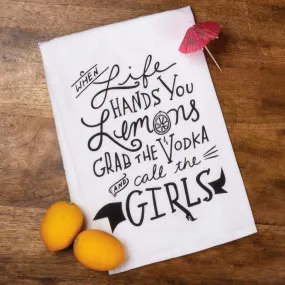 WHEN
Life
HANDS YOU
Lemons
GRAB THE VODKA
AND call the
GIRLS